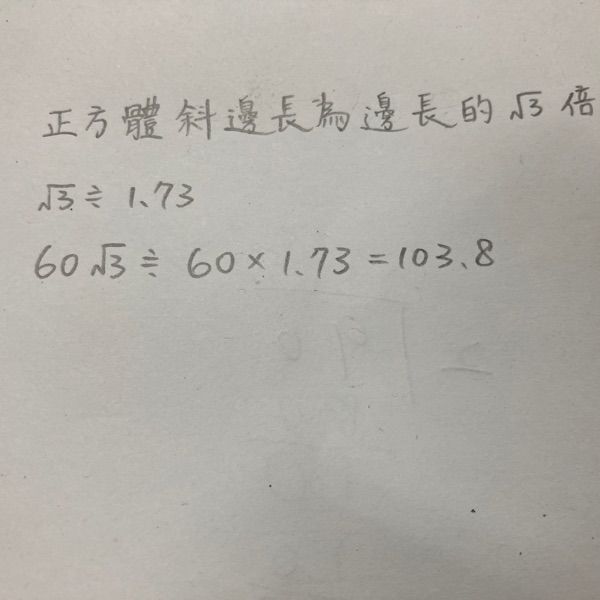 正方體斜邊長為邊長的√3倍
√3≒1.73
60√3≒60×1.73=103.8